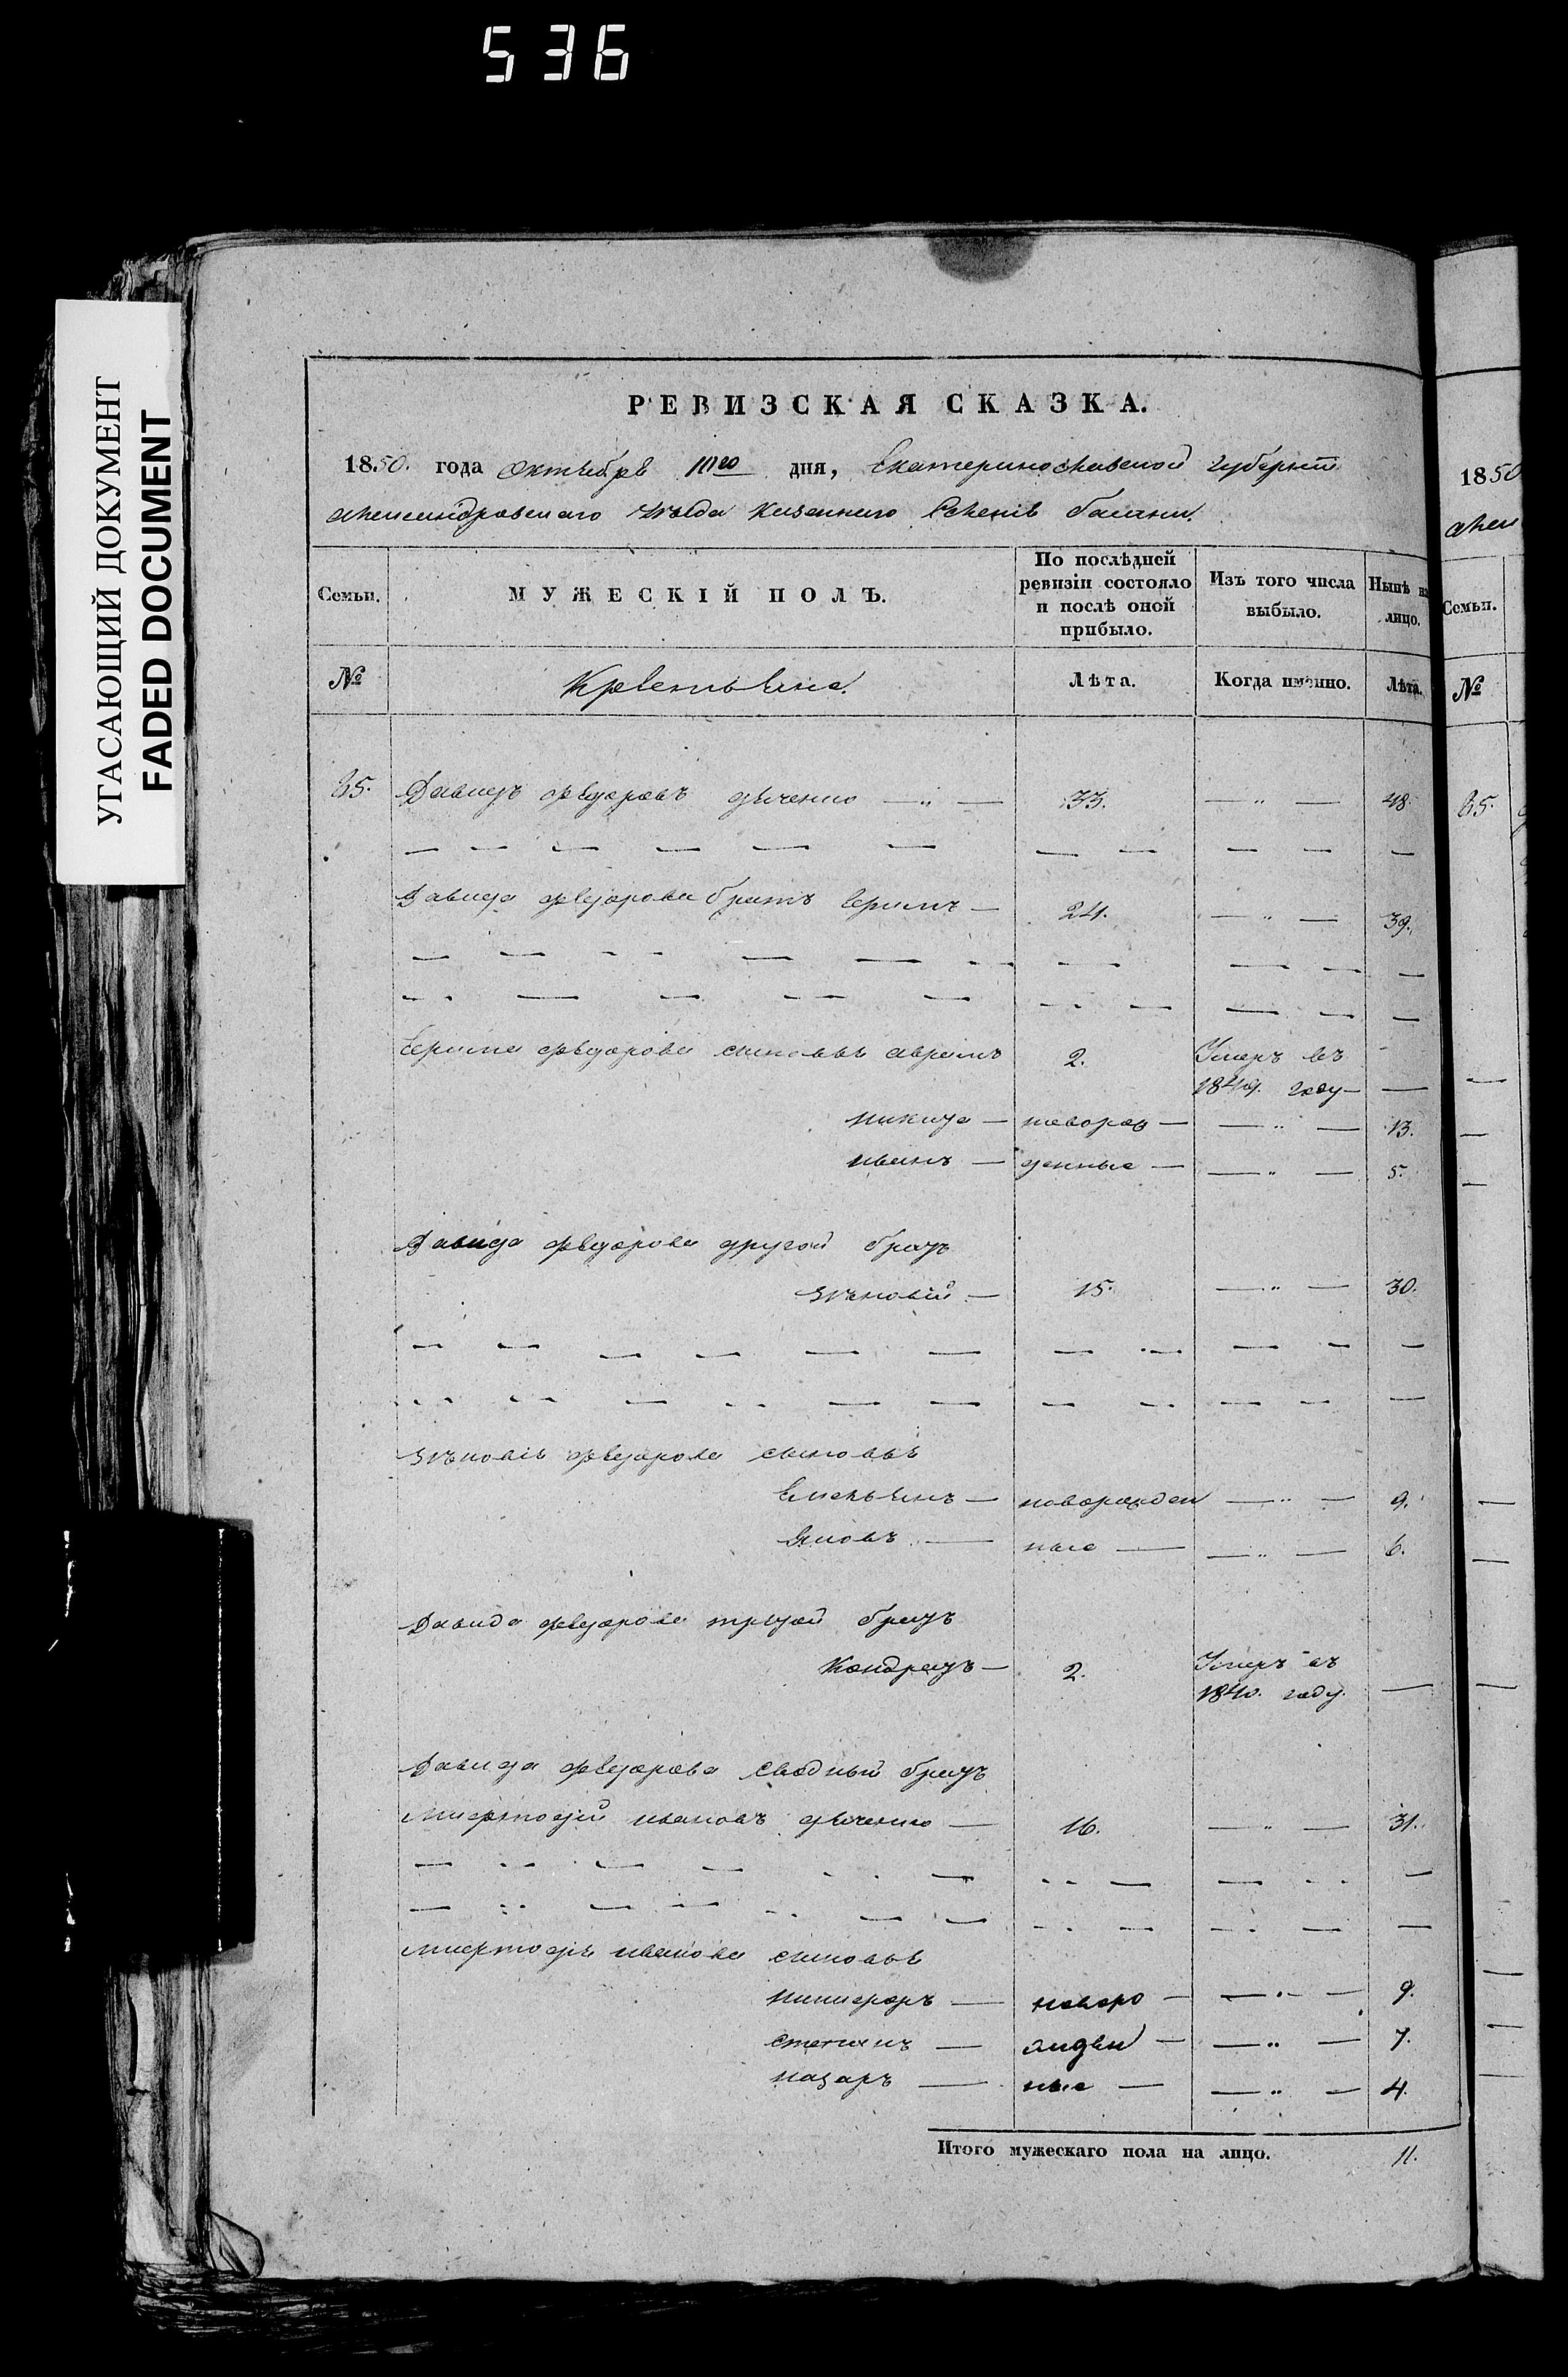 536
УГАСАЮЩИЙ ДОКУМЕНТ
FADED DOCUMENT
РЕВИЗСКАЯ СКАЗКА.
1850. года октября дня, Екатеринославской губерніи
александровскаго уѣзда казеннаго селенія
Семьи. МУЖЕСКІЙ ПОЛЪ. По послѣдней ревизіи состояло и послѣ оной прибыло. Изъ того числа выбыло. Нынѣ на лицо.
№ Крестьяне. Лѣта. Когда именно. Лѣта.
Давидъ федоровъ дяченко — „ — 33. — „ — 48.
Давида федорова братъ — 24. — „ — 39.
федорова сыновья 2. Умеръ въ
году —
никита — новорож — — „ — 13.
иванъ — денные — — „ — 5.
Давида федорова другой братъ
зѣновій — 15. — „ — 30.
зѣновія федорова сыновья
Емельянъ — новорожден — „ — 9.
Яковъ — ные — — „ — 6.
Давида федорова третий братъ
Кондратъ — 2. Умеръ въ
1840. году. —
Давида федорова сводный братъ
ивановъ дяченко — 16. — „ — 31.
иванова сыновья
никифоръ — новоро — — „ — 9.
степанъ — жден — — „ — 7.
назаръ — ные — — „ — 4.
Итого мужескаго пола на лицо. 11.
1850
Семьи.
№